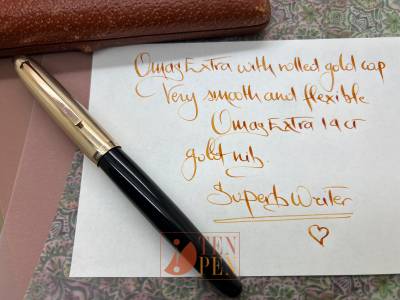 Omas Extra with rolled gold cap
Very smooth and flexible
Omas Extra 14 ct
gold nib.
Superb Writer
TEN
PEN